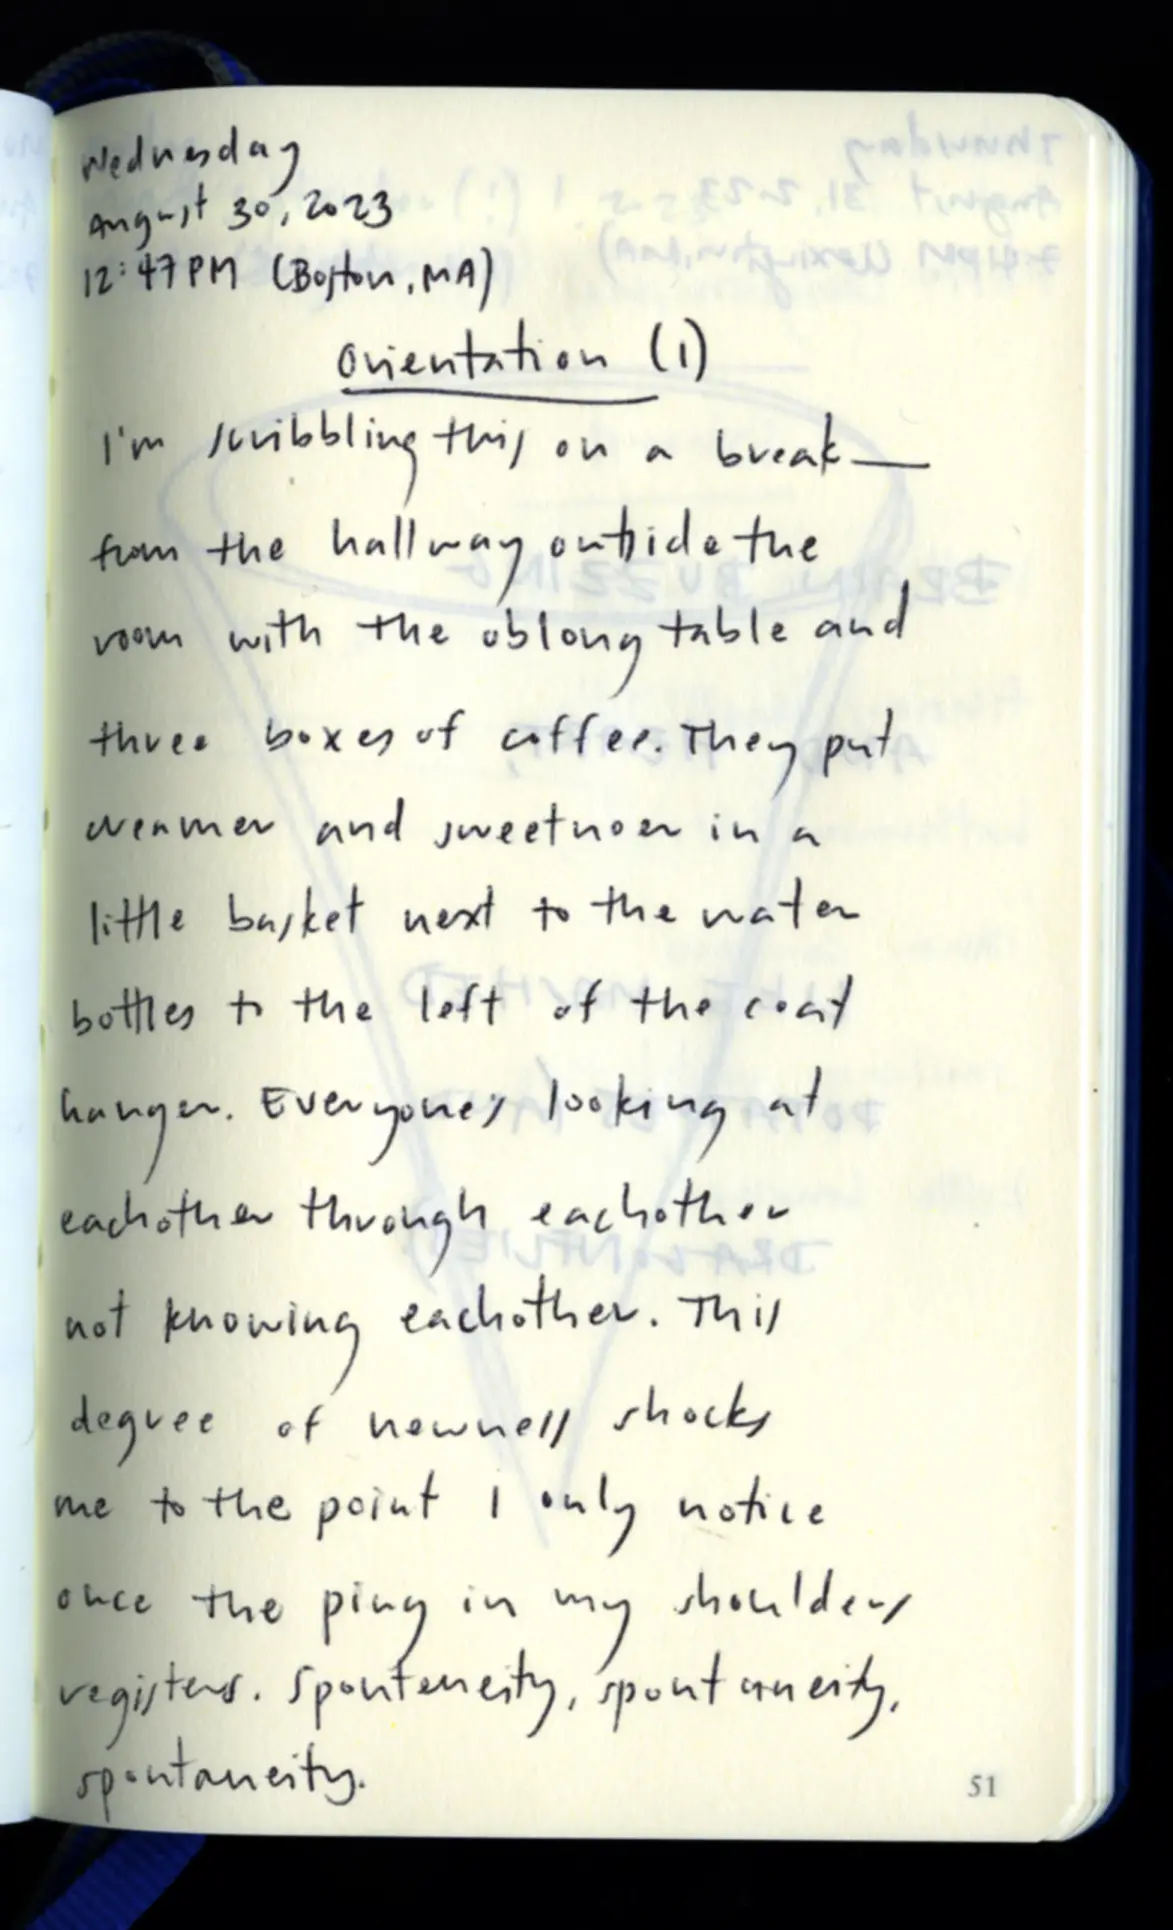 Wednesday
August 30, 2023
12:47 PM (Boston, MA)
Orientation (1)
I'm scribbling this on a break—
from the hallway outside the
room with the oblong table and
three boxes of coffee. They put
creamer and sweetnoer in a
little basket next to the water
bottles to the left of the coat
hanger. Everyone's looking at
eachother through eachother
not knowing eachother. This
degree of newness shocks
me to the point I only notice
once the ping in my shoulders
registers. Spontaneity, spontaneity,
spontaneity.
51
Thursday
August 31, 2023
7:41PM (Lexington, MA)
BRAIN BUZZING
DRAGONFLIES